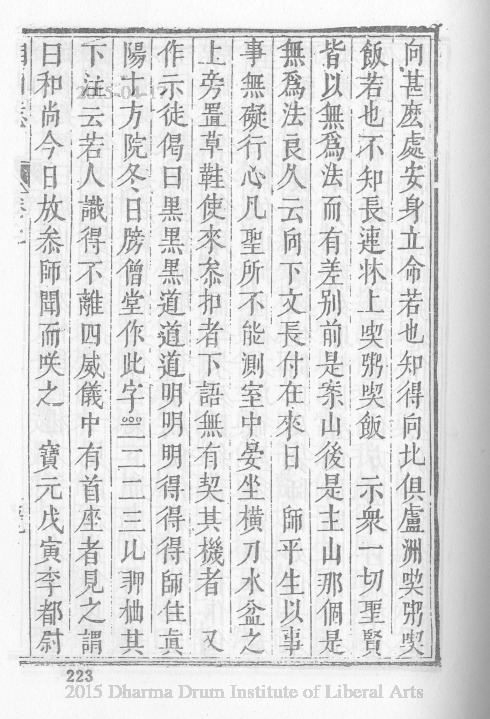 向甚麼處安身立命若也知得向北俱盧洲喫粥喫
飯若也不知長連牀上喫粥喫飯　示衆一切聖賢
皆以無爲法而有差別前是案山後是主山那個是
無爲法良久云向下文長付在來日　師平生以事
事無礙行心凡聖所不能測室中晏坐橫刀水盆之
上旁置草鞋使來叅扣者下語無有契其機者　又
作示徒偈曰黑黑黑道道道明明明得得得師住眞
陽十方院冬日牓僧堂作此字二二三其
下注云若人識得不離四威儀中有首座者見之謂
曰和尚今日放叅師聞而咲之　寶元戊寅李都尉
223
2015 Dharma Drum Institute of Liberal Arts